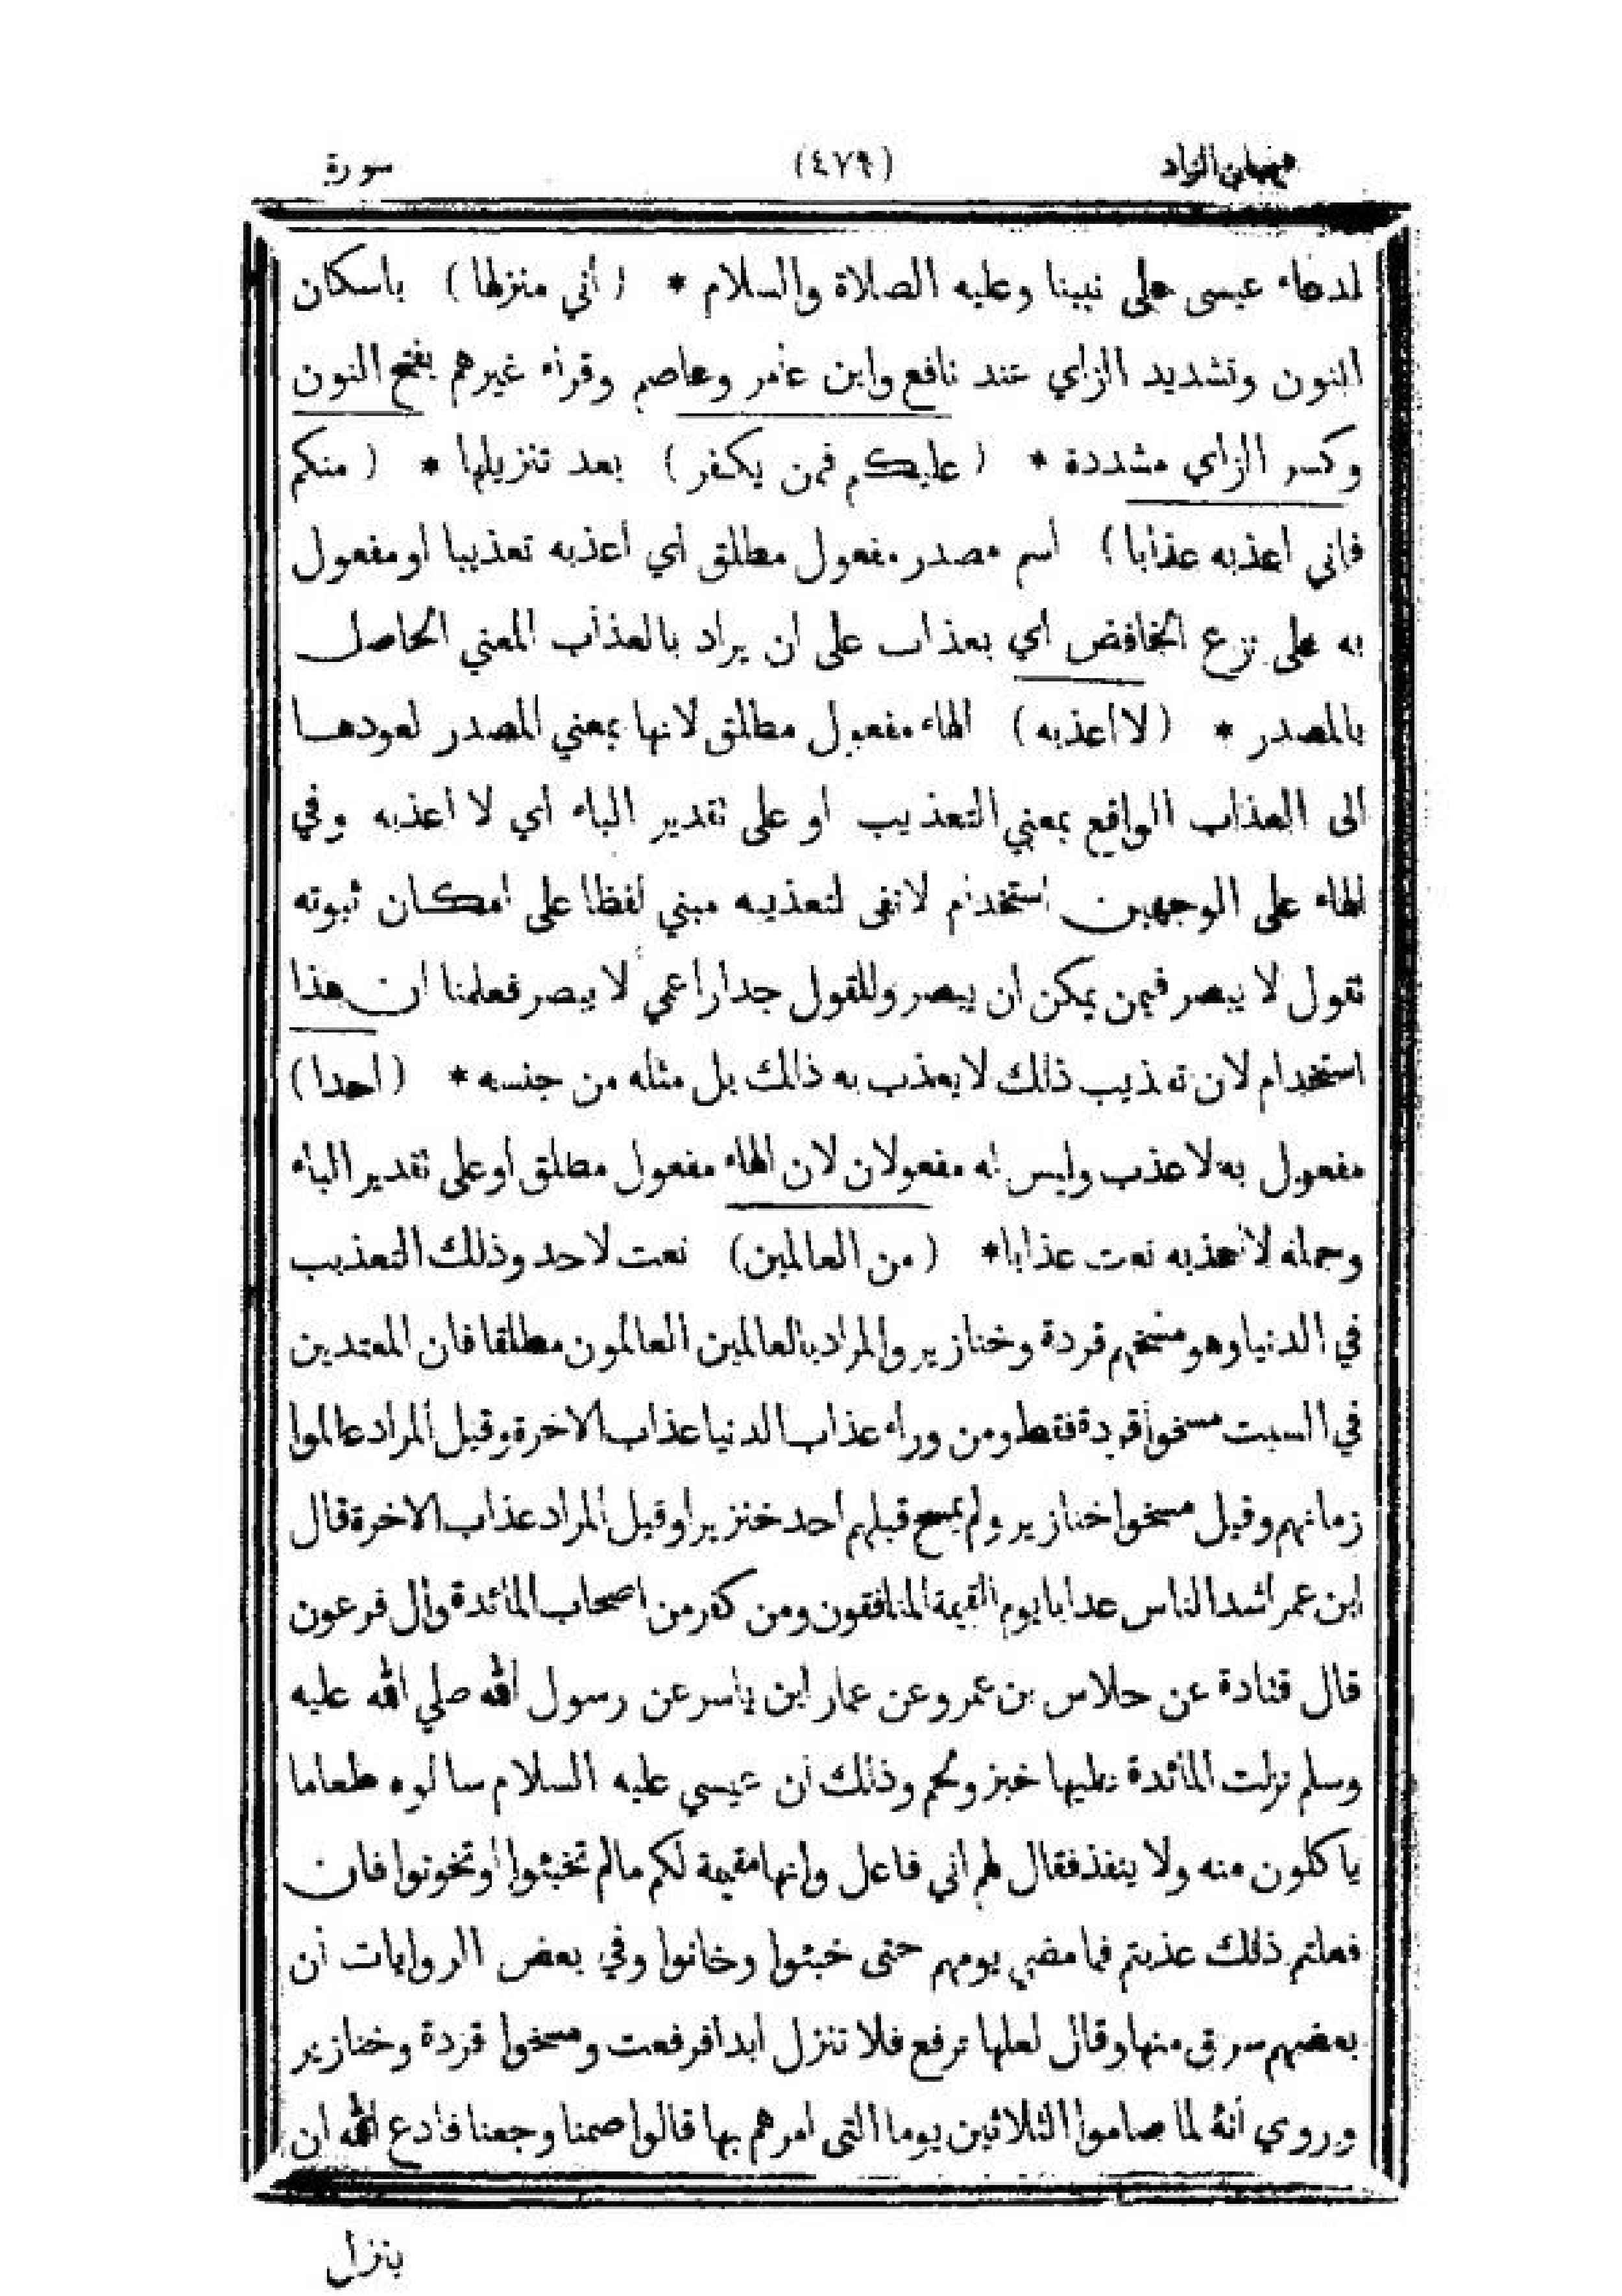 هميان الزاد (٤٧٩) سورة
لدعاء عيسى على نبينا وعليه الصلاة والسلام * ( أني منزلها ) باسكان
النون وتشديد الزاي عند نافع وابن عامر وعاصم وقراء غيرهم بفتح النون
وكسر الزاي مشددة * ( عليكم فمن يكفر ) بعد تنزيلها * ( منكم
فاني اعذبه عذابا ) اسم مصدر مفعول مطلق أي اعذبه تعذيبا او مفعول
به على نزع الخافض اي بعذاب على ان يراد بالعذاب المعني الحاصل
بالمصدر * ( لا اعذبه ) الهاء مفعول مطلق لانها بمعني المصدر لعودها
الى العذاب الواقع بمعني التعذيب او على تقدير الباء أي لا اعذبه وفي
الهاء على الوجهين استخدام لا نفى لتعذيبه مبني لفظا على امكان ثبوته
تقول لا يبصر فيمن يمكن ان يبصر وللقول جدار اعمي لا يبصر فعلمنا ان هذا
استخدام لان تعذيب ذلك لا يعذب به ذالك بل مثله من جنسه * ( احدا )
مفعول به لاعذب وليس له مفعولان لان الهاء مفعول مطلق او على تقدير الباء
وجملة لا أعذبه نعت عذابا * ( من العالمين ) نعت لاحد وذلك التعذيب
في الدنيا وهو مسخهم قردة وخنازير والمراد بالعالمين العالمون مطلقا فان المعتدين
في السبت مسخوا قردة فقط ومن وراء عذاب الدنيا عذاب الاخرة وقيل المراد عالموا
زمانهم وقيل مسخوا خنازير ولم يمسخ قبلهم احد خنزيرا وقيل المراد عذاب الاخرة قال
ابن عمر اشد الناس عدابا يوم القيمة المنافقون ومن كفر من اصحاب المائدة وآل فرعون
قال قتادة عن حلاس بن عمرو عن عمار ابن ياسر عن رسول الله صلي الله عليه
وسلم نزلت المائدة عليها خبز ولحم وذلك أن عيسي عليه السلام سالوه طعاما
ياكلون منه ولا ينفذ فقال لهم اني فاعل وانها مقيمة لكم مالم تخبئوا او تخونوا فان
فعلتم ذلك عذبتم فما مضي يومهم حتى خبئوا وخانوا وفي بعض الروايات أن
بعضهم سرق منها وقال لعلها ترفع فلا تنزل ابدا فرفعت ومسخوا قردة وخنازير
وروي أنه لما صاموا الثلاثين يوما التى امرهم بها قالوا صمنا وجعنا فادع الله ان
ينزل